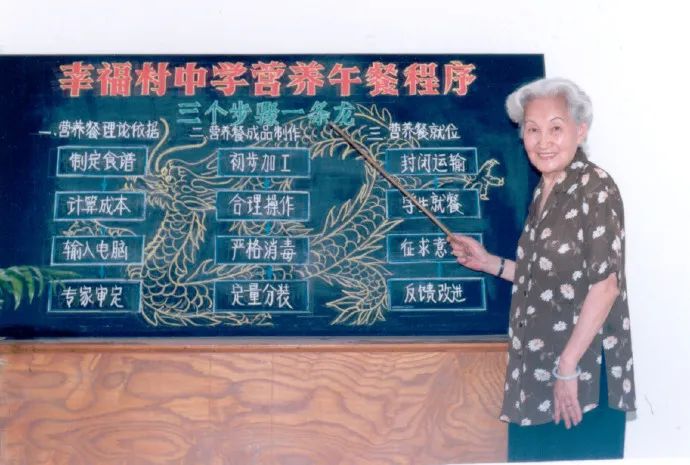 幸福村中学营养午餐程序
三个步骤一条龙
一、营养餐理论依据
制定食谱
计算成本
输入电脑
专家审定
二 营养餐成品制作
初步加工
合理操作
严格消毒
定量分装
三 营养餐就位
封闭运输
学生就餐
征求意
反馈改进